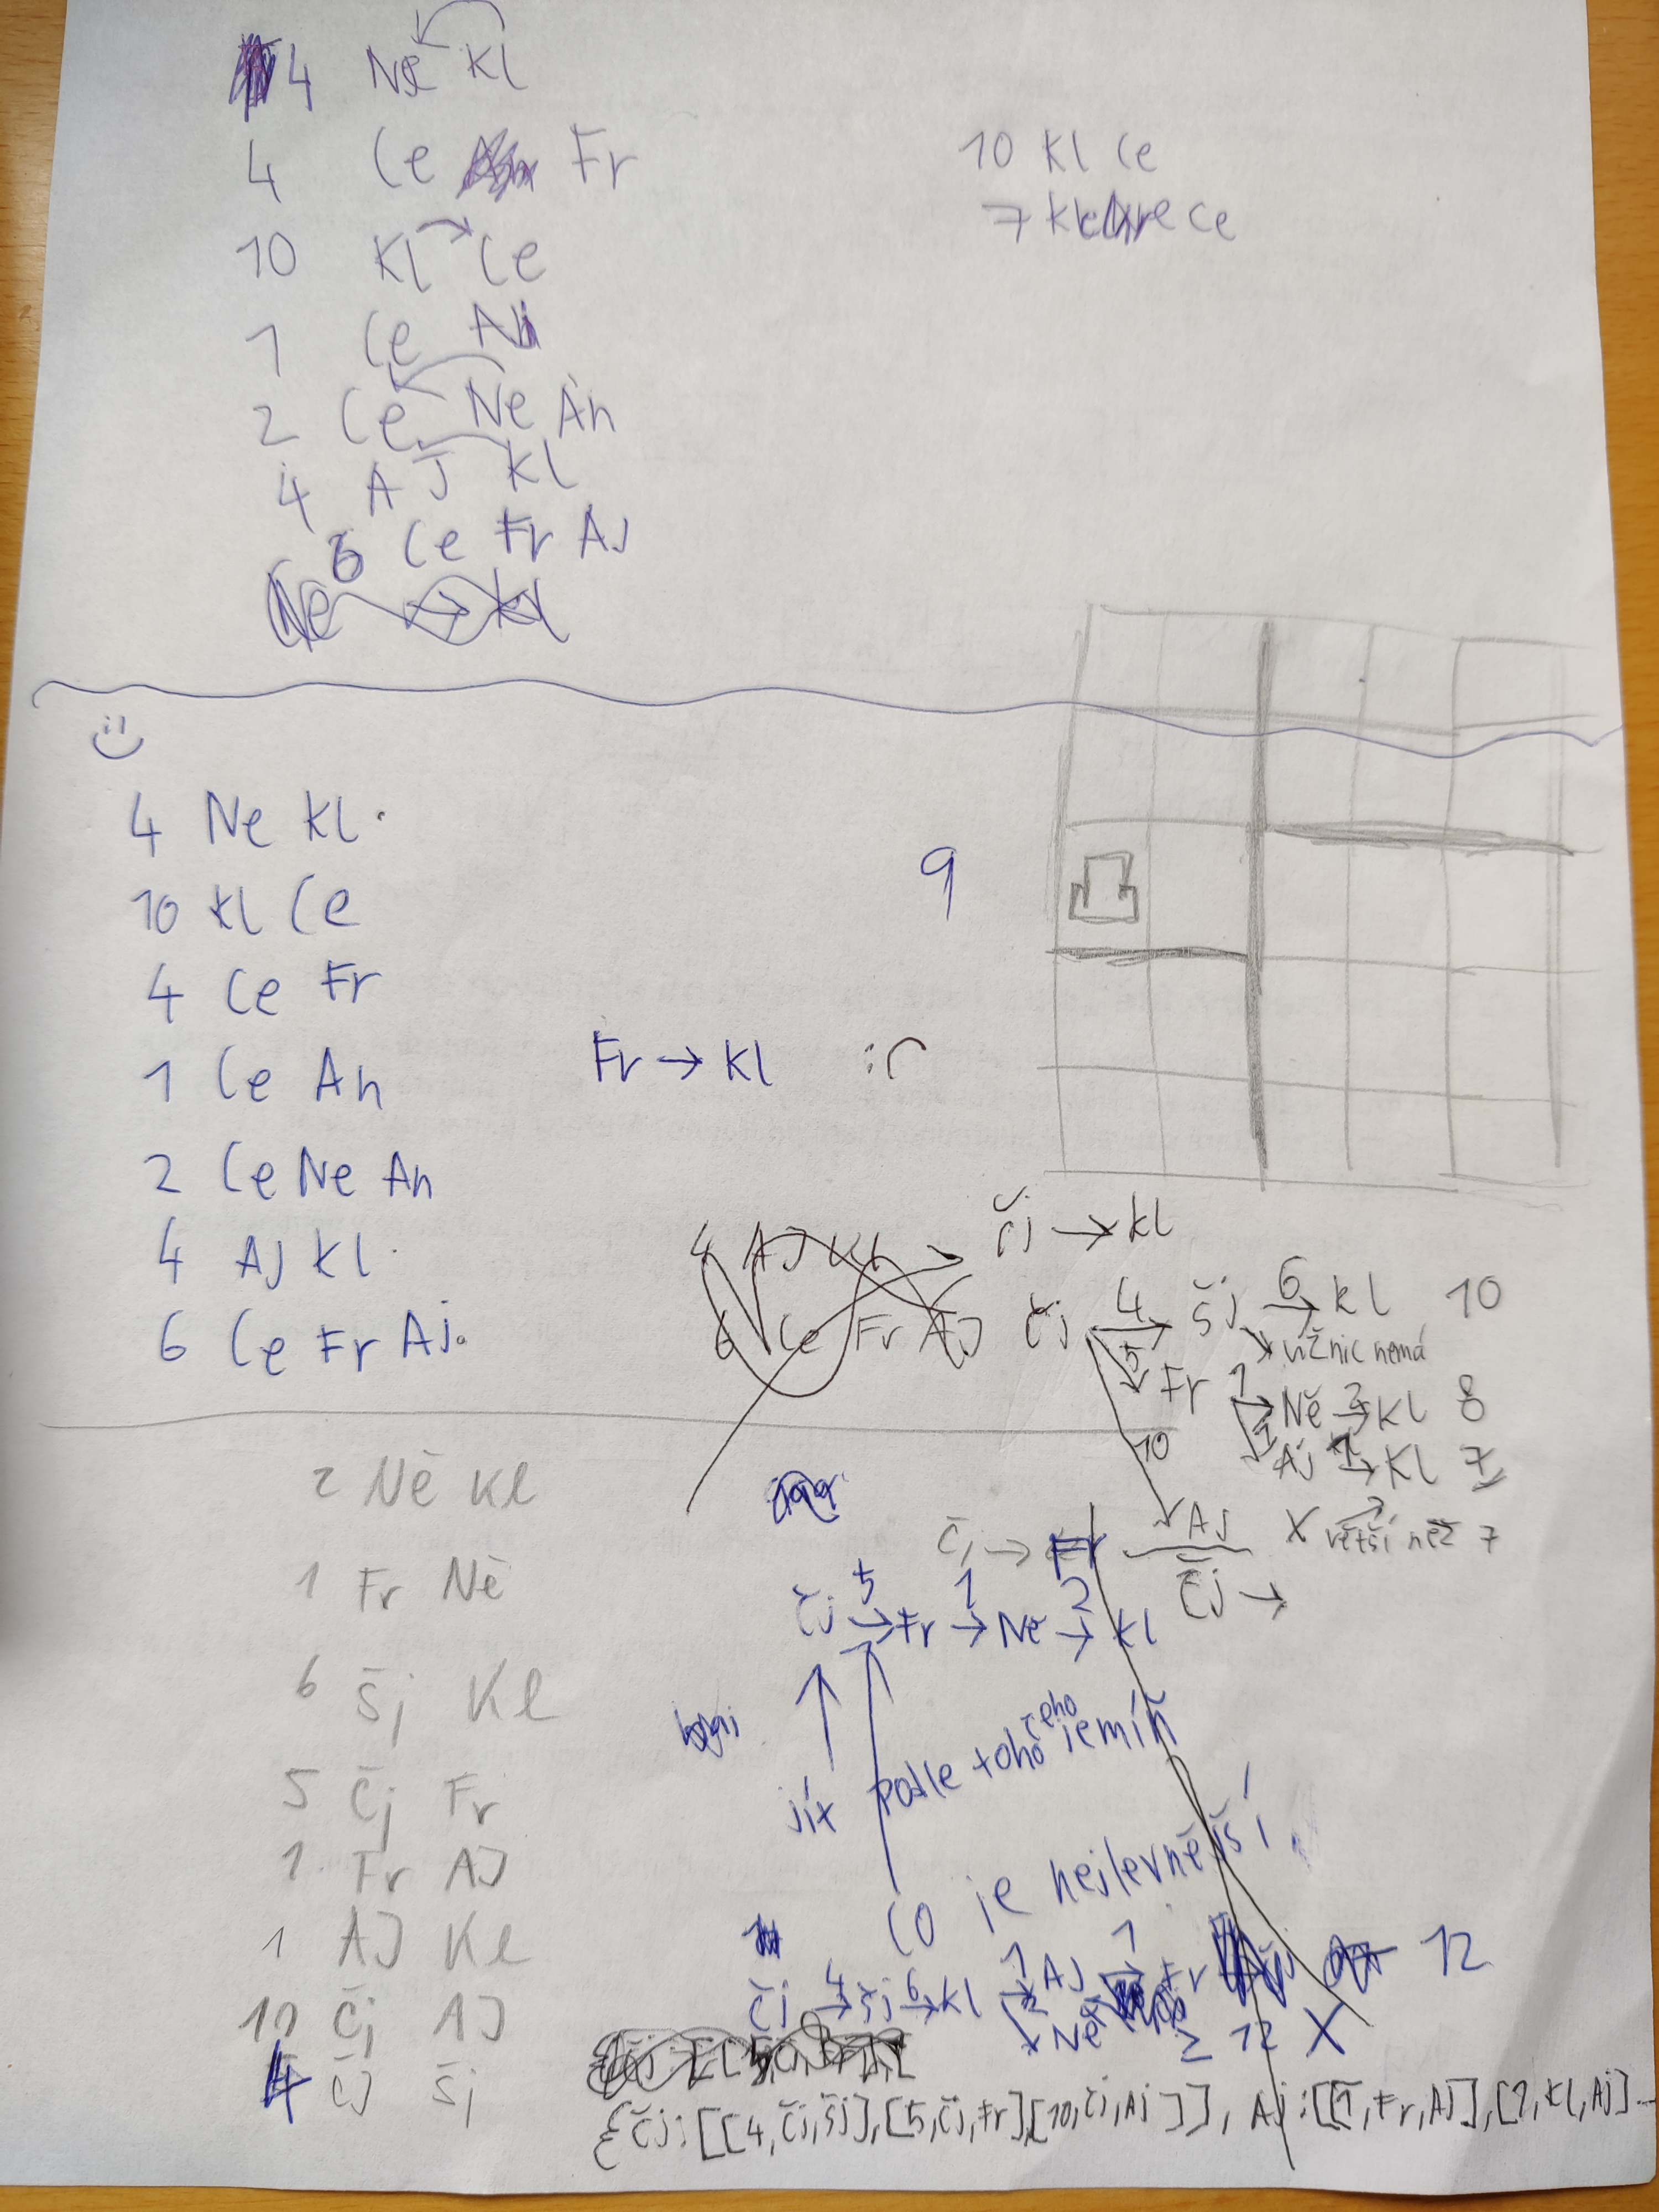 4 Ne Kl
4 Ce Fr
10 Kl → Ce
1 Ce
2 Ce Ne An
4 AJ Kl
6 Ce Fr AJ
Ne → Kl
10 Kl Ce
7 Ce
4 Ne Kl
10 Kl Ce
4 Ce Fr
1 Ce An
2 Ce Ne An
4 AJ Kl
6 Ce Fr AJ
9
Fr → Kl :(
4 AJ Kl
6 Ce Fr AJ
čj → kl
čj 4→ šj 6→ kl 10
už nic nemá
5 Fr 1→ Ně 2→ Kl 8
1 Aj 1→ Kl 7
10 AJ X větší než 7
2 Ně Kl
1 Fr Ně
6 Šj Kl
5 Čj Fr
1 Fr AJ
1 AJ Kl
10 Čj AJ
4 ČJ Šj
Čj → Fr
Čj →
čj 5→ Fr 1→ Ně 2→ kl
jít podle toho čeho je míň
co je nejlevnější
čj 4→ šj 6→ kl 1→ AJ 1→ Fr 12
Ně ≥ 12 X
{čj:[[4,čj,šj],[5,čj,Fr],[10,čj,Aj]], Aj:[[1,Fr,AJ],[1,Kl,Aj]...